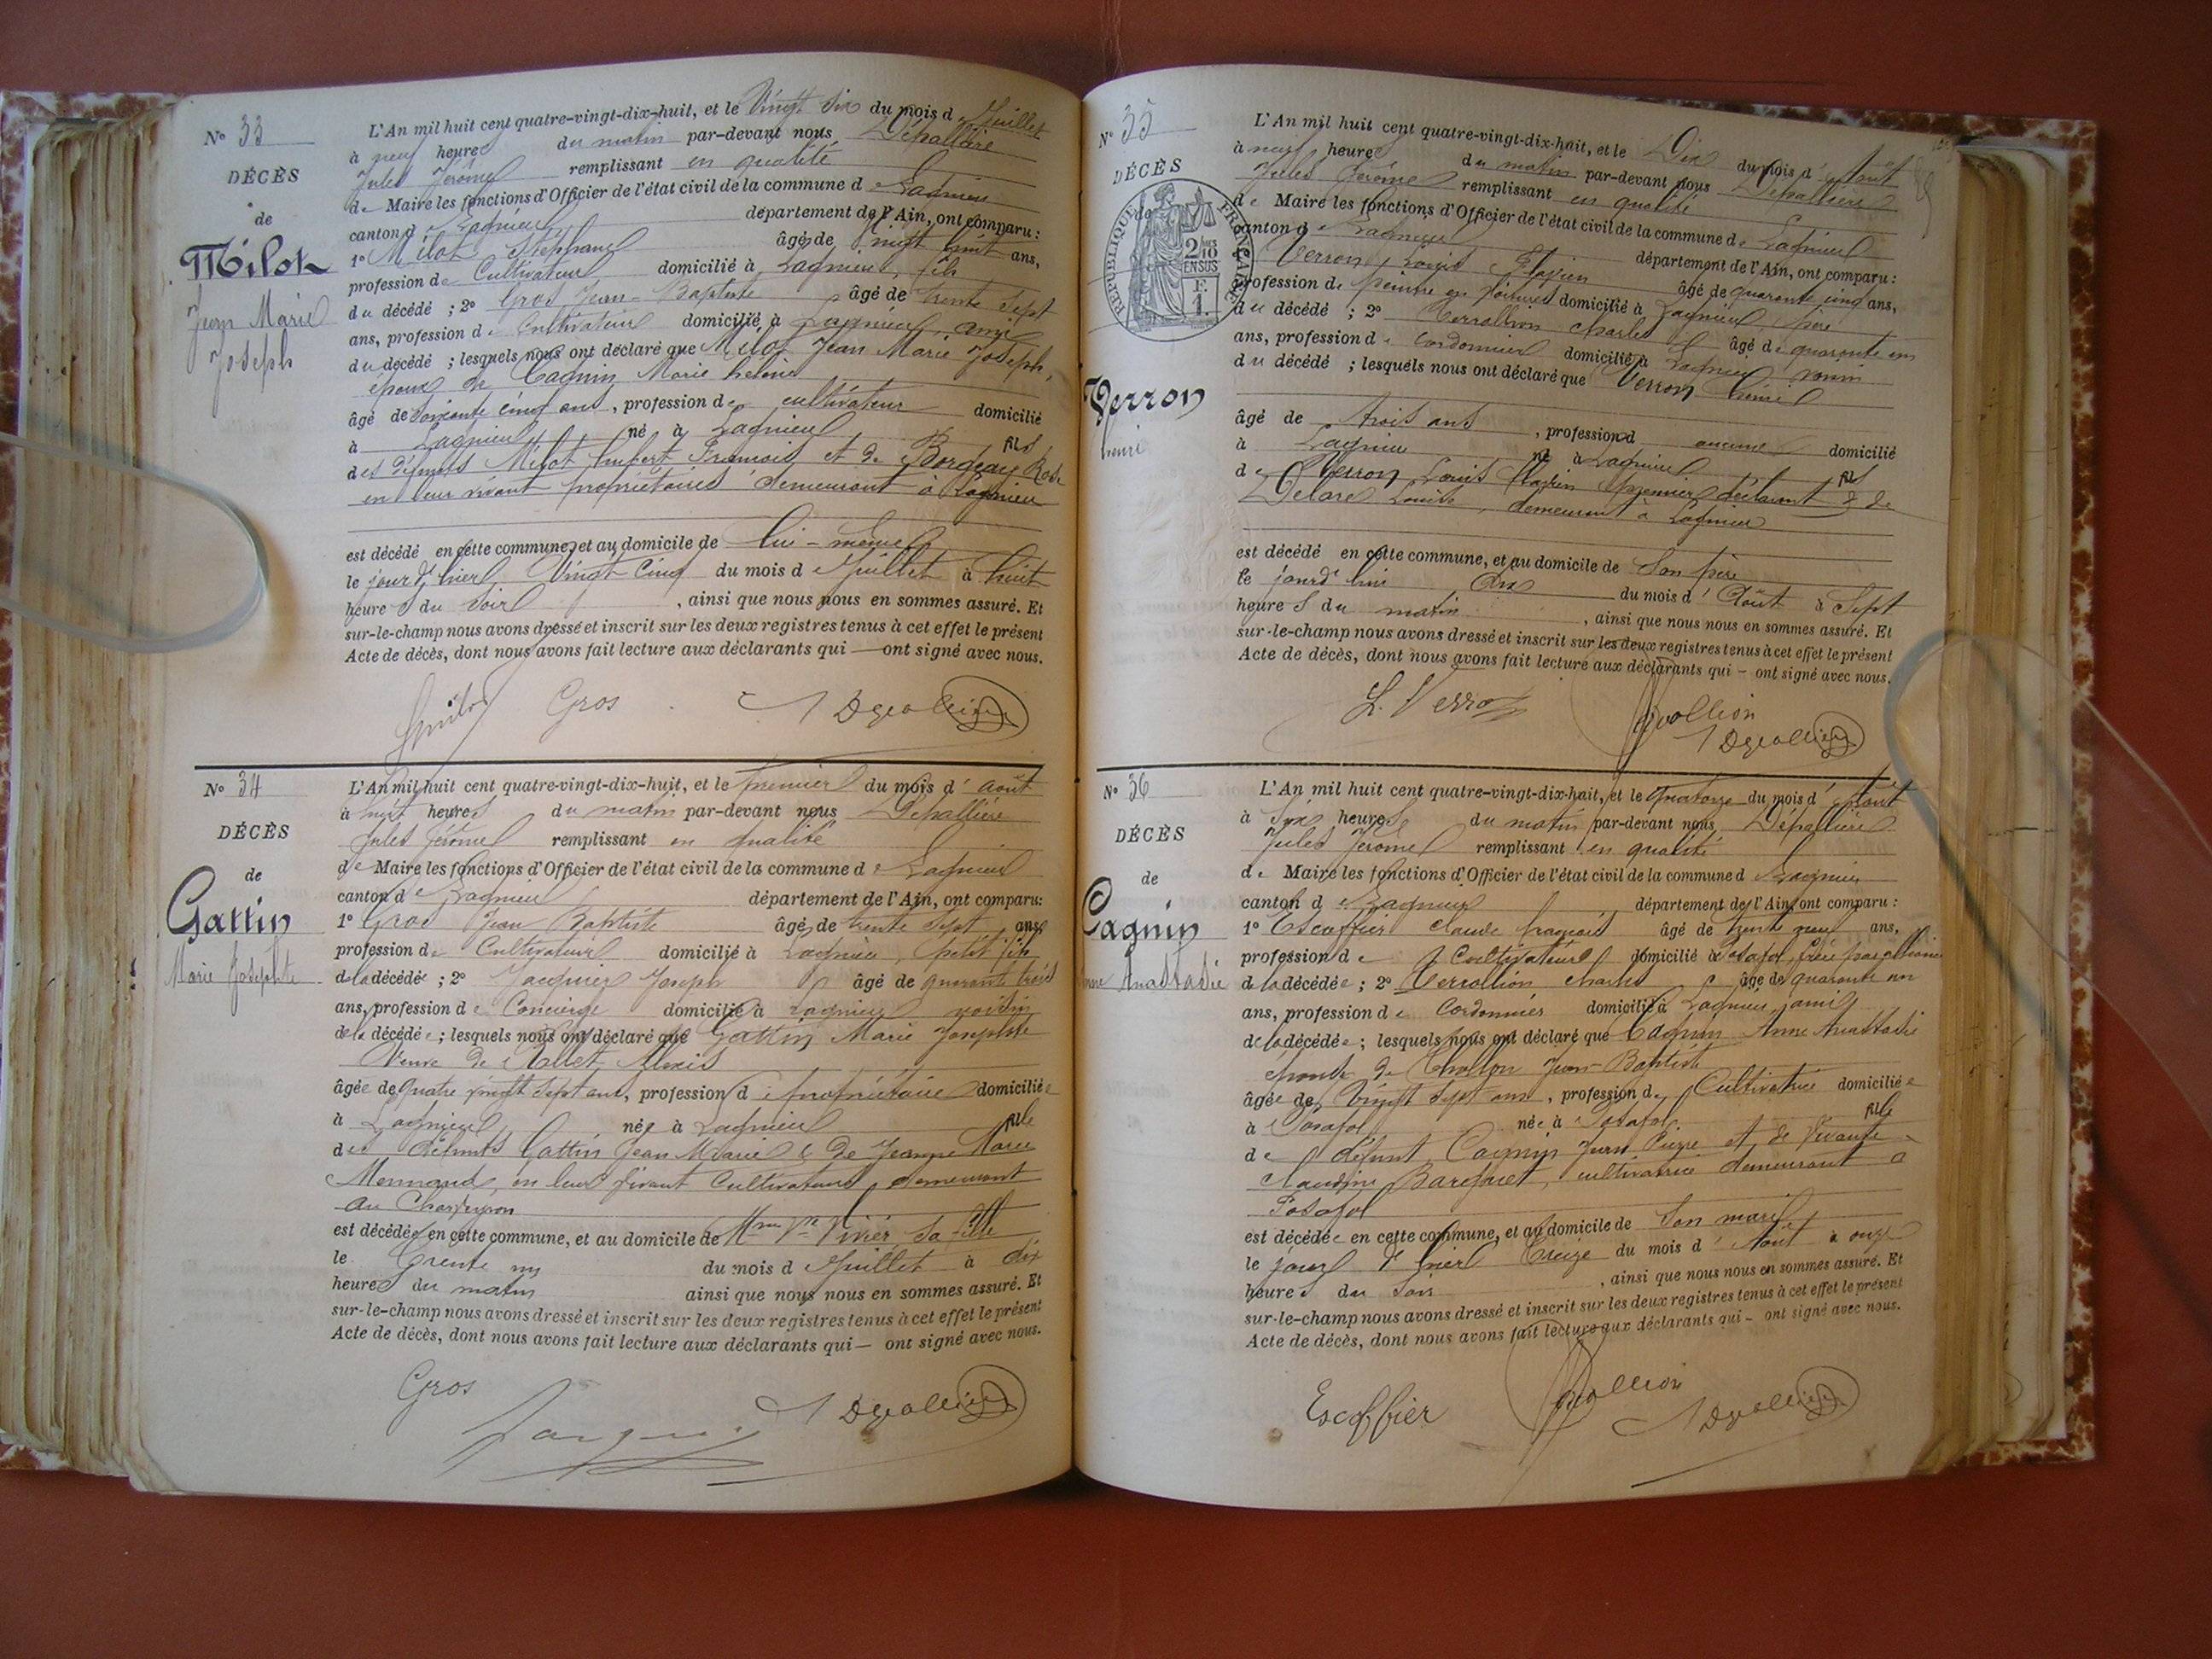 N° 33
DÉCÈS
de
Milot
Jean Marie
Joseph
L'An mil huit cent quatre-vingt-dix-huit, et le Vingt six du mois de Juillet
à neuf heures du matin par-devant nous Dépallière
Jules Jérôme remplissant en qualité
de Maire les fonctions d'Officier de l'état civil de la commune de Lagnieu
canton de Lagnieu département de l'Ain, ont comparu :
1° Milot Stéphane âgé de vingt huit ans,
profession de Cultivateur domicilié à Lagnieu, fils
du décédé ; 2° Gros Jean-Baptiste âgé de trente sept
ans, profession de Cultivateur domicilié à Lagnieu, ami
du décédé ; lesquels nous ont déclaré que Milot Jean Marie Joseph,
époux de Cagnin Marie hélène
âgé de soixante cinq ans, profession de cultivateur domicilié
à Lagnieu né à Lagnieu fils
des défunts Milot François et de Rose
en leur vivant propriétaires demeurant à Lagnieu
est décédé en cette commune, et au domicile de lui-même
le jour d'hier Vingt Cinq du mois de Juillet à huit
heures du soir, ainsi que nous nous en sommes assuré. Et
sur-le-champ nous avons dressé et inscrit sur les deux registres tenus à cet effet le présent
Acte de décès, dont nous avons fait lecture aux déclarants qui — ont signé avec nous.
Gros
N° 34
DÉCÈS
de
Gattin
Marie Josephte
L'An mil huit cent quatre-vingt-dix-huit, et le premier du mois d'août
à huit heures du matin par-devant nous Dépallière
Jules Jérôme remplissant en qualité
de Maire les fonctions d'Officier de l'état civil de la commune de Lagnieu
canton de Lagnieu département de l'Ain, ont comparu:
1° Gros Jean Baptiste âgé de trente sept ans
profession de Cultivateur domicilié à Lagnieu, petit fils
de la décédée ; 2° Jacquier Joseph âgé de quarante trois
ans, profession de Concierge domicilié à Lagnieu voisin
de la décédée ; lesquels nous ont déclaré que Gattin Marie Josephte
Veuve de Alexis
âgée de quatre vingt sept ans, profession de propriétaire domiciliée
à Lagnieu née à Lagnieu fille
des défunts Gattin Jean Marie & de Jeanne Marie
en leur vivant Cultivateurs demeurant
au Charveyron
est décédée en cette commune, et au domicile de Mme Vve Vivier sa fille
le Trente un du mois de Juillet à dix
heures du matin ainsi que nous nous en sommes assuré. Et
sur-le-champ nous avons dressé et inscrit sur les deux registres tenus à cet effet le présent
Acte de décès, dont nous avons fait lecture aux déclarants qui — ont signé avec nous.
Gros
N° 35
DÉCÈS
de
RÉPUBLIQUE FRANÇAISE
2/10 EN SUS
F. 1.
Verron
henri
L'An mil huit cent quatre-vingt-dix-huit, et le Dix du mois d'Août
à neuf heures du matin par-devant nous Dépallière
Jules Jérôme remplissant en qualité
de Maire les fonctions d'Officier de l'état civil de la commune de Lagnieu
canton de Lagnieu département de l'Ain, ont comparu :
Verron Louis âgé de quarante cinq ans,
profession de peintre en domicilié à Lagnieu, père
du décédé ; 2° Verrollion charles âgé de quarante un
ans, profession de Cordonnier domicilié à Lagnieu voisin
du décédé ; lesquels nous ont déclaré que Verron henri
âgé de trois ans, profession d aucune domicilié
à Lagnieu né à Lagnieu fils
de Verron Louis premier déclarant & de
Louise, demeurant à Lagnieu
est décédé en cette commune, et au domicile de Son père
le jourd'hui dix du mois d'Août à Sept
heures du matin, ainsi que nous nous en sommes assuré. Et
sur-le-champ nous avons dressé et inscrit sur les deux registres tenus à cet effet le présent
Acte de décès, dont nous avons fait lecture aux déclarants qui — ont signé avec nous.
L. Verron
N° 36
DÉCÈS
de
Cagnin
Anne Anastasie
L'An mil huit cent quatre-vingt-dix-huit, et le Quatorze du mois d'Août
à Six heures du matin par-devant nous Dépallière
Jules Jérôme remplissant en qualité
de Maire les fonctions d'Officier de l'état civil de la commune d Lagnieu
canton de Lagnieu département de l'Ain, ont comparu :
1° Escoffier claude françois âgé de trente neuf ans,
profession de Cultivateur domicilié à Posafol, frère par alliance
de la décédée ; 2° Verrollion charles âgé de quarante un
ans, profession de Cordonnier domicilié à Lagnieu, ami
de la décédée ; lesquels nous ont déclaré que Cagnin Anne Anastasie
épouse de Chollon Jean-Baptiste
âgée de Vingt Sept ans, profession de Cultivatrice domiciliée
à Posafol née à Posafol fille
de défunt Cagnin Jean Pierre et de Vivante
claudine cultivatrice demeurant à
Posafol
est décédée en cette commune, et au domicile de Son mari
le jour d'hier Treize du mois d'Août à onze
heures du Soir, ainsi que nous nous en sommes assuré. Et
sur-le-champ nous avons dressé et inscrit sur les deux registres tenus à cet effet le présent
Acte de décès, dont nous avons fait lecture aux déclarants qui — ont signé avec nous.
Escoffier